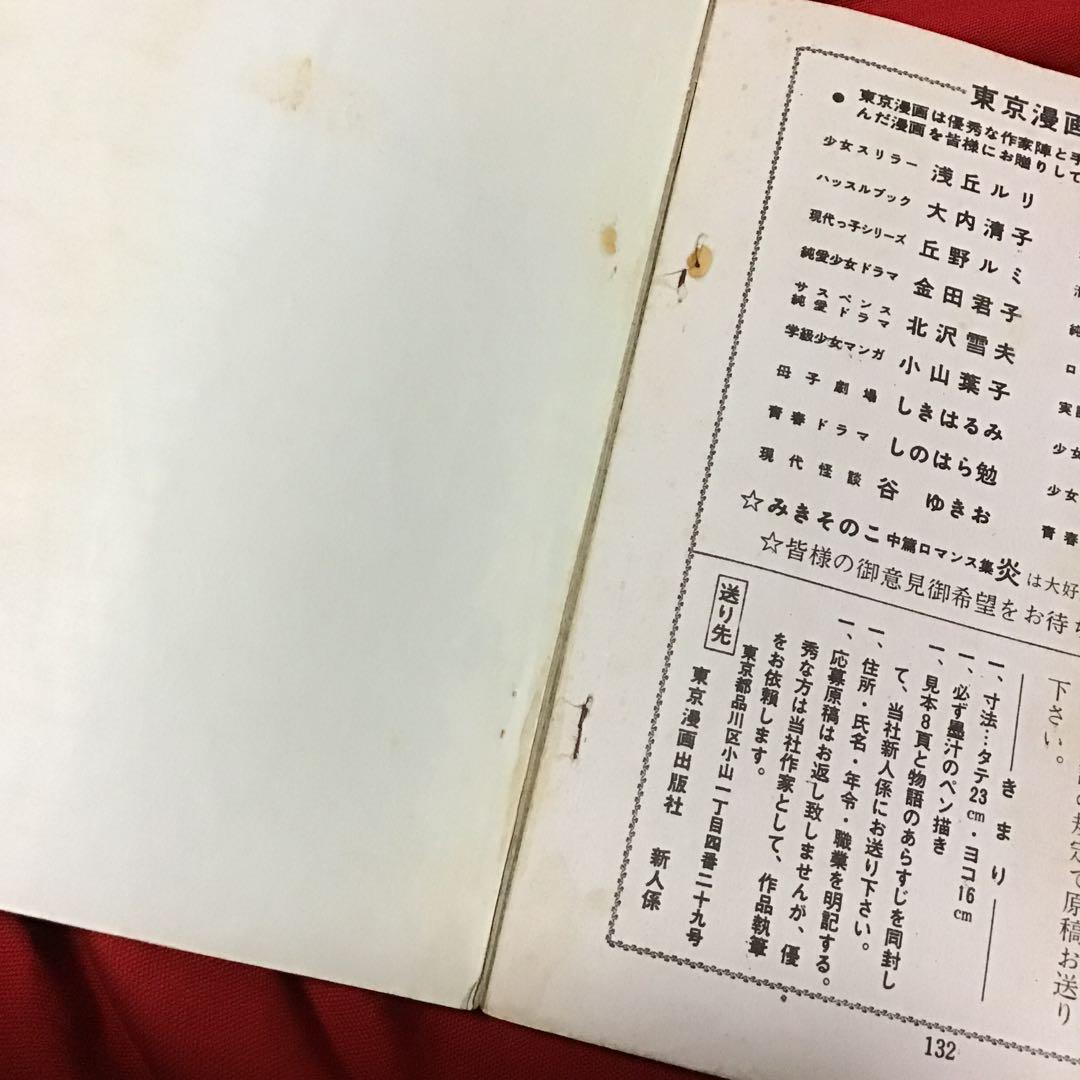 東京漫画
● 東京漫画は優秀な作家陣と手
んだ漫画を皆様にお贈りして
少女スリラー 浅丘ルリ
ハッスルブック 大内清子
現代っ子シリーズ 丘野ルミ
純愛少女ドラマ 金田君子
サスペンス
純愛ドラマ 北沢雪夫
学級少女マンガ 小山葉子
母子劇場 しきはるみ
青春ドラマ しのはら勉
現代怪談 谷 ゆきお
純
ロ
実
少女
少女
青春
☆みきそのこ中篇ロマンス集炎は大好
☆皆様の御意見御希望をお待ち
規定で原稿お送り
下さい。
きまり
一、寸法…タテ23cm・ヨコ16cm
一、必ず墨汁のペン描き
一、見本8頁と物語のあらすじを同封し
て、当社新人係にお送り下さい。
一、住所・氏名・年令・職業を明記する。
一、応募原稿はお返し致しませんが、優
秀な方は当社作家として、作品執筆
をお依頼します。
送り先
東京都品川区小山一丁目四番二十九号
東京漫画出版社 新人係
132